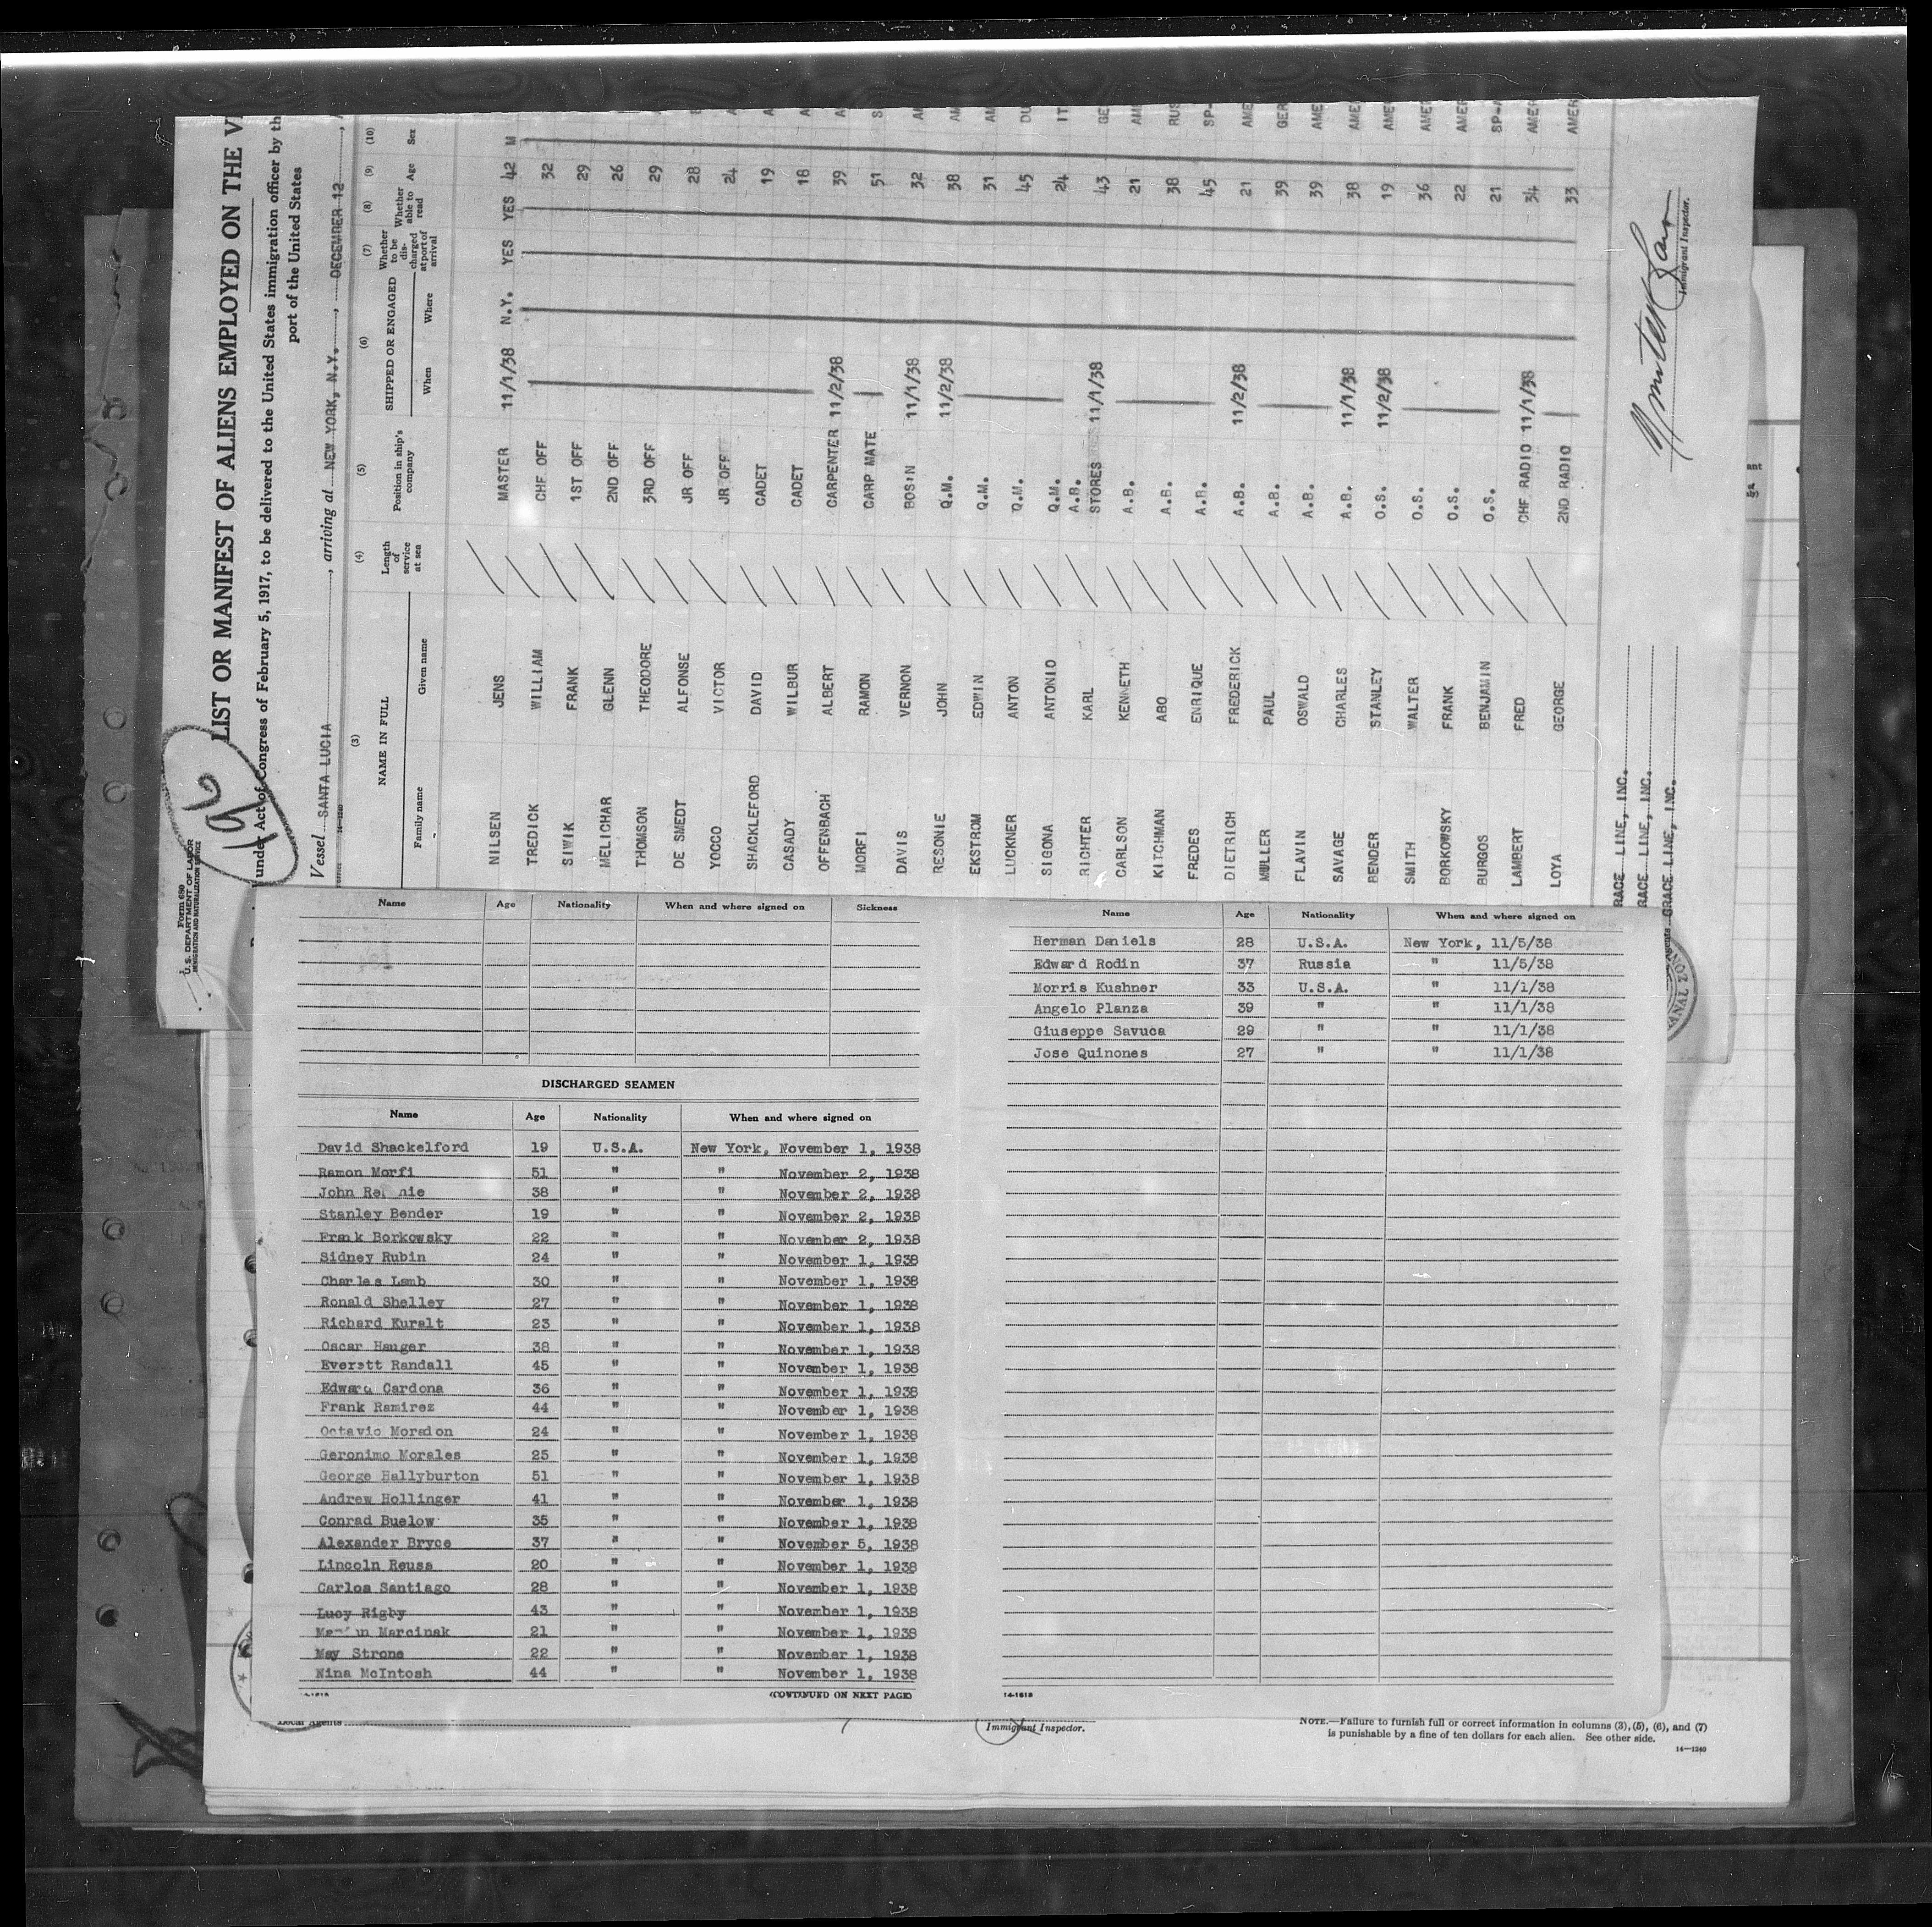 Form 680
U. S. DEPARTMENT OF LABOR
IMMIGRATION AND NATURALIZATION SERVICE
196
LIST OR MANIFEST OF ALIENS EMPLOYED ON THE
under Act of Congress of February 5, 1917, to be delivered to the United States immigration officer by th
port of the United States
Vessel SANTA LUCIA, arriving at NEW YORK, N.Y., DECEMBER 12
(3) (4) (5) (6) (7) (8) (9) (10)
NAME IN FULL Length of service at sea Position in ship's company SHIPPED OR ENGAGED Whether to be discharged at port of arrival Whether able to read Age Sex
Family name Given name When Where
NILSEN JENS MASTER 11/1/38 N.Y. YES YES 42 M
TREDICK WILLIAM CHF OFF 32
SIWIK FRANK 1ST OFF 29
MELICHAR GLENN 2ND OFF 26
THOMSON THEODORE 3RD OFF 29
DE SMEDT ALFONSE JR OFF 28
YOCCO VICTOR JR OFF 24 A
SHACKLEFORD DAVID CADET 19 A
CASADY WILBUR CADET 18 A
OFFENBACH ALBERT CARPENTER 11/2/38 39 A
MORFI RAMON CARP MATE 51 S
DAVIS VERNON BOSIN 11/1/38 32 AM
RESONIE JOHN Q.M. 11/2/38 38 AM
EKSTROM EDWIN Q.M. 31 AM
LUCKNER ANTON Q.M. 45 DU
SIGONA ANTONIO Q.M. 24 IT
RICHTER KARL A.B. STORES 11/1/38 43 GE
CARLSON KENNETH A.B. 21 AM
KITCHMAN ABO A.B. 38 RUS
FREDES ENRIQUE A.B. 45 SP-
DIETRICH FREDERICK A.B. 11/2/38 21 AME
MULLER PAUL A.B. 39 GER
FLAVIN OSWALD A.B. 39 AME
SAVAGE CHARLES A.B. 11/1/38 38 AME
BENDER STANLEY O.S. 11/2/38 19 AME
SMITH WALTER O.S. 36 AME
BORKOWSKY FRANK O.S. 22 AMER
BURGOS BENJAMIN O.S. 21 SP-A
LAMBERT FRED CHF RADIO 11/1/38 34 AMER
LOYA GEORGE 2ND RADIO 33 AMER
RACE LINE, INC.
RACE LINE, INC.
GRACE LINE, INC.
Immigrant Inspector.
Name Age Nationality When and where signed on Sickness
DISCHARGED SEAMEN
Name Age Nationality When and where signed on
David Shackelford 19 U.S.A. New York, November 1, 1938
Ramon Morfi 51 " " November 2, 1938
John 38 " " November 2, 1938
Stanley Bender 19 " " November 2, 1938
Frank Borkowsky 22 " " November 2, 1938
Sidney Rubin 24 " " November 1, 1938
Charles Lamb 30 " " November 1, 1938
Ronald Shelley 27 " " November 1, 1938
Richard Kuralt 23 " " November 1, 1938
Oscar Hauger 38 " " November 1, 1938
Everett Randall 45 " " November 1, 1938
Edward Cardona 36 " " November 1, 1938
Frank Ramirez 44 " " November 1, 1938
Octavio 24 " " November 1, 1938
Geronimo Morales 25 " " November 1, 1938
George Hallyburton 51 " " November 1, 1938
Andrew Hollinger 41 " " November 1, 1938
Conrad Buelow 35 " " November 1, 1938
Alexander Bryce 37 " " November 5, 1938
Lincoln Reuss 20 " " November 1, 1938
Carlos Santiago 28 " " November 1, 1938
Lucy Rigby 43 " " November 1, 1938
Marcinak 21 " " November 1, 1938
May Strone 22 " " November 1, 1938
Nina McIntosh 44 " " November 1, 1938
(CONTINUED ON NEXT PAGE)
Name Age Nationality When and where signed on
Herman Daniels 28 U.S.A. New York, 11/5/38
Edward Rodin 37 Russia " 11/5/38
Morris Kushner 33 U.S.A. " 11/1/38
Angelo Planza 39 " " 11/1/38
Giuseppe Savuca 29 " " 11/1/38
Jose Quinones 27 " " 11/1/38
14-1618
Local Agents
Immigrant Inspector.
NOTE.—Failure to furnish full or correct information in columns (3), (5), (6), and (7)
is punishable by a fine of ten dollars for each alien. See other side.
14—1240